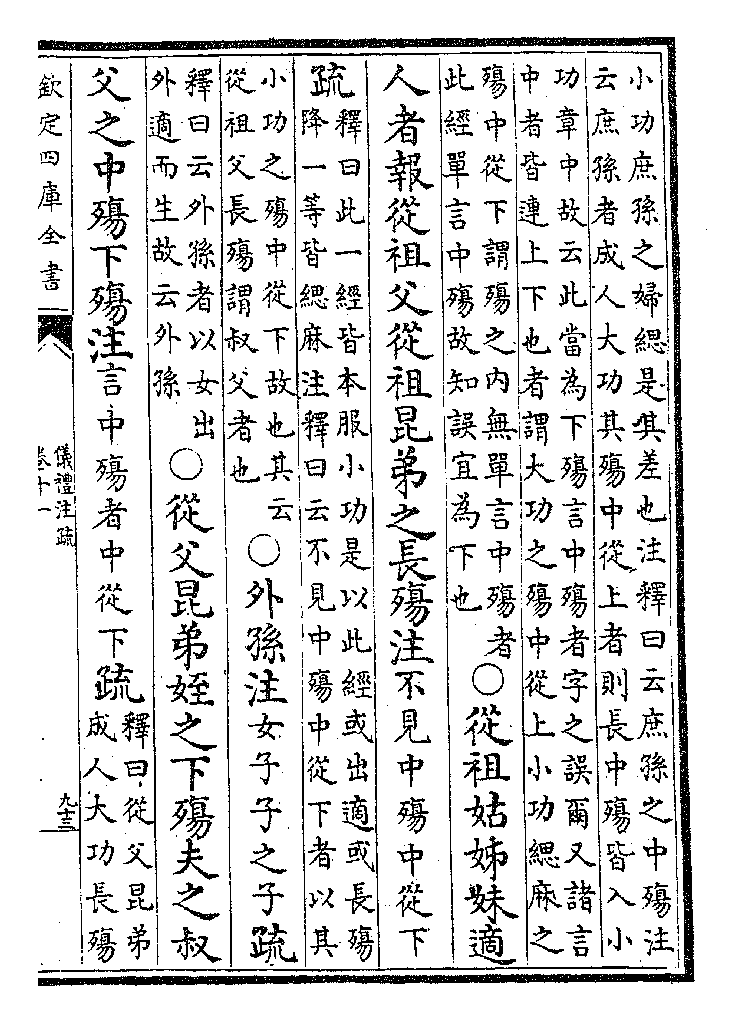 小功庶孫之婦緦是其差也注釋曰云庶孫之中殤注
云庶孫者成人大功其殤中從上者則長中殤皆入小
功章中故云此當為下殤言中殤者字之誤爾又諸言
中者皆連上下也者謂大功之殤中從上小功緦麻之
殤中從下謂殤之内無單言中殤者
此經單言中殤故知誤宜為下也
○從祖姑姊妹適
人者報從祖父從祖昆弟之長殤注不見中殤中從下
疏
釋曰此一經皆本服小功是以此經或出適或長殤
降一等皆緦麻注釋曰云不見中殤中從下者以其
小功之殤中從下故也其云
從祖父長殤謂叔父者也
○外孫注女子子之子疏
釋曰云外孫者以女出
外適而生故云外孫
○從父昆弟姪之下殤夫之叔
父之中殤下殤注言中殤者中從下疏
釋曰從父昆弟
成人大功長殤
欽定四庫全書
儀禮注疏
卷十一
九十三